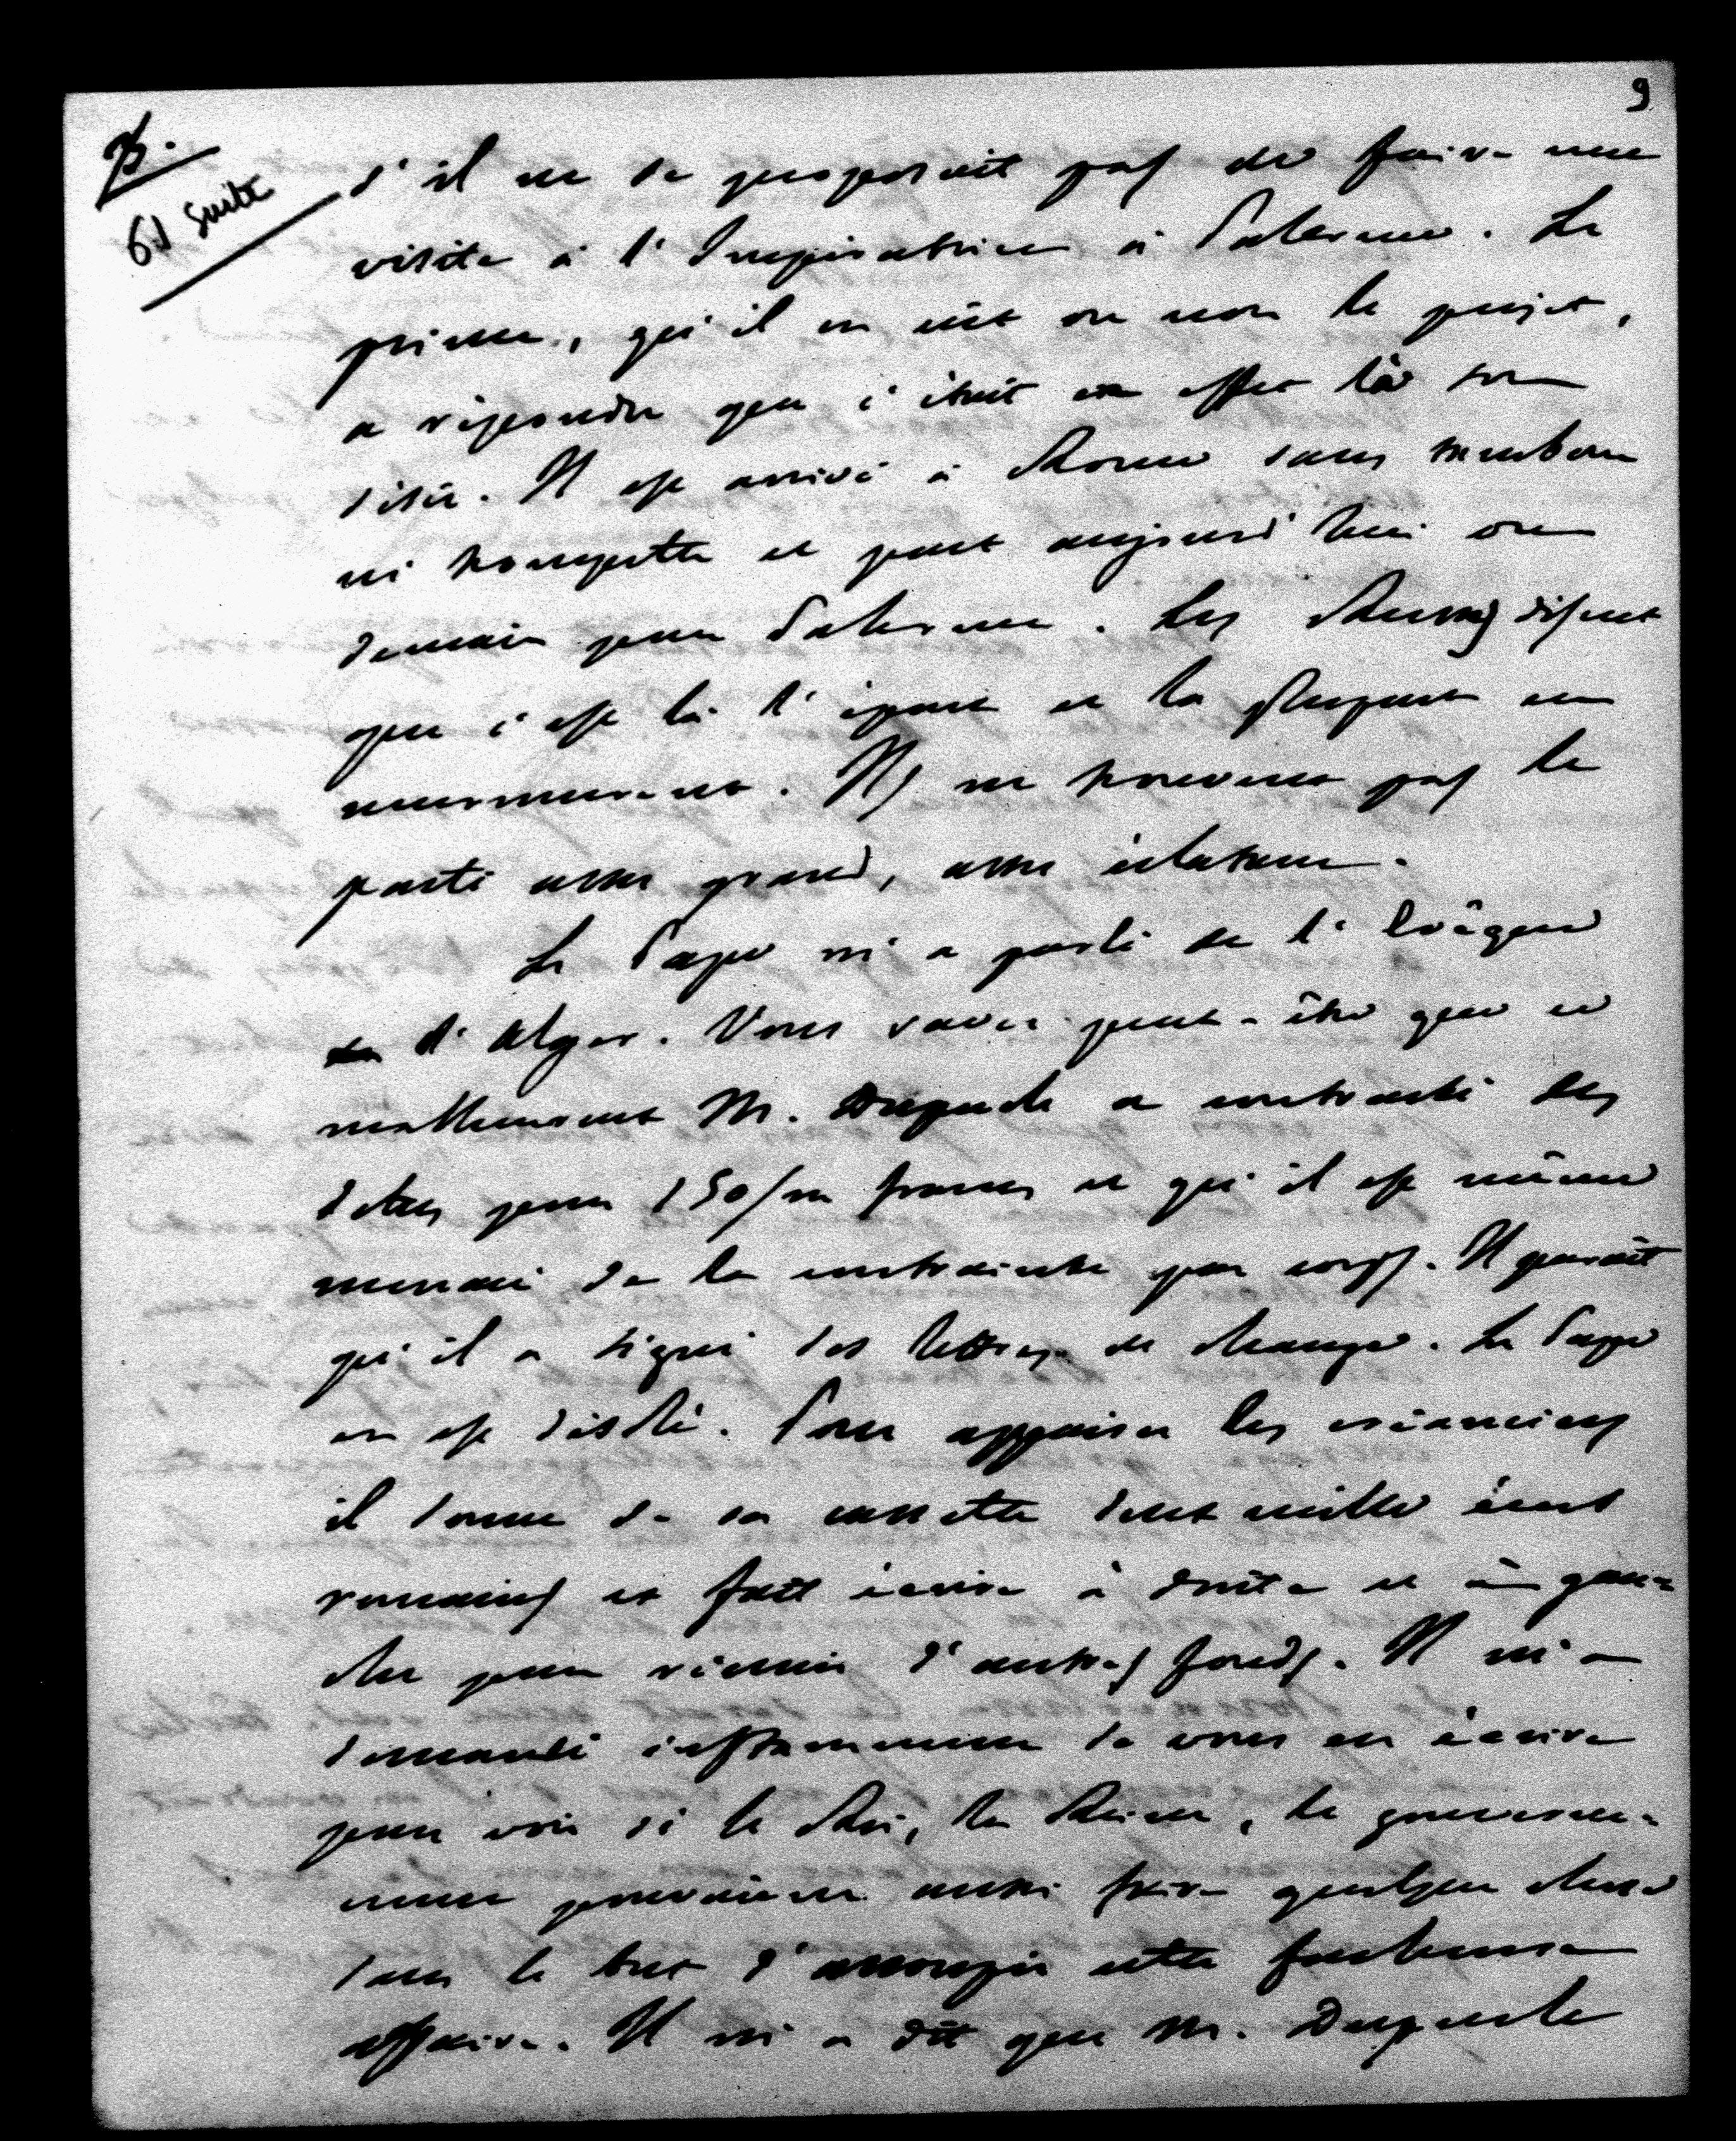 9
B.
61 suite
s'il ne se proposait pas de faire une
visite à l'Impératrice à Palerme. Le
prince, qu'il en eût ou non le projet,
a répondu que c'était en effet là son
désir. Il est arrivé à Rome sans tambour
ni trompette et part aujourd'hui ou
demain pour Palerme. Les Russes disent
que c'est là l'époux et la plupart en
murmurent. Ils ne trouvent pas le
parti assez grand, assez éclatant.
Le Pape m'a parlé de l'Evêque
d'Alger. Vous savez peut-être que ce
malheureux M. Dupuch a contracté des
dettes pour 150/m francs et qu'il est même
menacé de la contrainte par corps. Il paraît
qu'il a signé des lettres de change. Le Pape
en est désolé. Pour appaiser les créanciers
il donne de sa cassette deux mille écus
romains et fait écrire à droite et à gau-
che pour réunir d'autres fonds. Il m'a
demandé instamment de vous en écrire
pour voir si le Roi, la Reine, le gouverne-
ment pourraient aussi faire quelque chose
dans le but d'assoupir cette fâcheuse
affaire. Il m'a dit que M. Dupuch